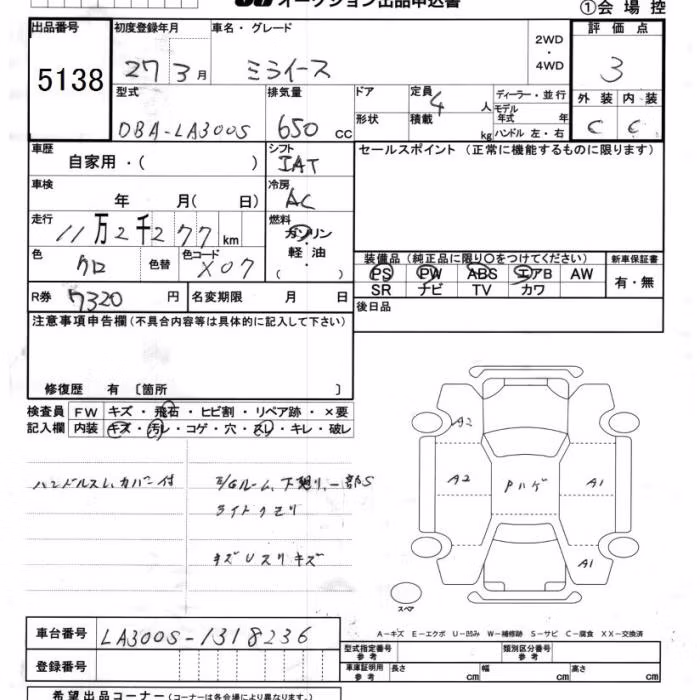 オークション出品申込書
①会場控
出品番号 初度登録年月 車名・グレード 評価点
5138 27 3月 ミライース 2WD・4WD 3
型式 排気量 ドア 定員 4人 ディーラー・並行 外装 内装
DBA-LA300S 650 cc 形状 積載 kg モデル年式 年 ハンドル 左・右 C C
車歴 自家用・( ) シフト IAT セールスポイント(正常に機能するものに限ります)
車検 年 月( 日) 冷房 AC
走行 11万2千277km 燃料 ガソリン 軽油 ( )
色 クロ 色替 色コード X07
装備品(純正品に限り○をつけてください) 新車保証書
PS PW ABS エアB AW 有・無
SR ナビ TV カワ
R券 7320 円 名変期限 月 日 後日品
注意事項申告欄(不具合内容等は具体的に記入して下さい)
修復歴 有 〔箇所 〕
検査員 FW キズ・飛石・ヒビ割・リペア跡・×要
記入欄 内装 キズ・汚レ・コゲ・穴・スレ・キレ・破レ
ハンドルスレ、カバー付 下廻り、一部S
ライトクモリ
キズUスリキズ
A2
A2 Pハゲ A1
A1
スペア
A-キズ E-エクボ U-凹み W-補修跡 S-サビ C-腐食 XX-交換済
車台番号 LA300S-1318236
型式指定番号 参考 類別区分番号 参考
登録番号 車庫証明用 参考 長さ cm 幅 cm 高さ cm
希望出品コーナー(コーナーは各会場により異なります。)